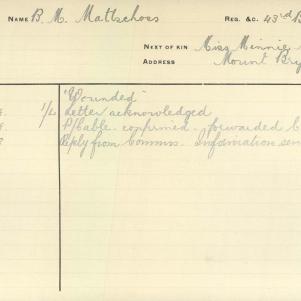 NAME B. M. Mattschoss REG. &C. 43rd B
NEXT OF KIN Miss Minnie
ADDRESS Mount Bry
"Wounded"
1/L Letter acknowledged
P/Cable. confirmed. forwarded
Reply from Commrs. Information sen